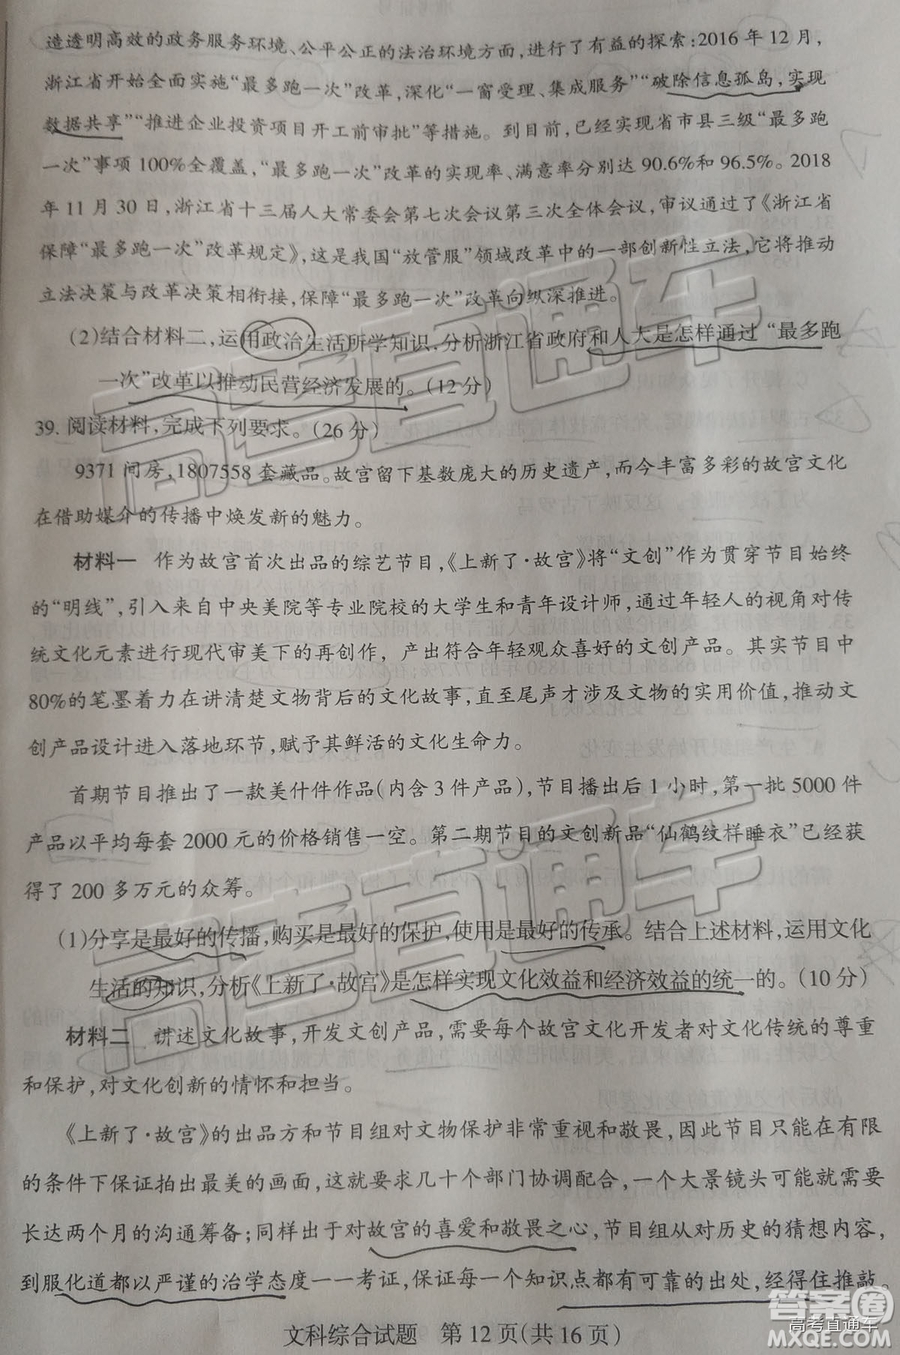 造透明高效的政务服务环境、公平公正的法治环境方面，进行了有益的探索：2016 年 12 月，
浙江省开始全面实施“最多跑一次”改革，深化“一窗受理、集成服务”“破除信息孤岛，实现
数据共享”“推进企业投资项目开工前审批”等措施。到目前，已经实现省市县三级“最多跑
一次”事项 100%全覆盖，“最多跑一次”改革的实现率、满意率分别达 90.6%和 96.5%。2018
年 11 月 30 日，浙江省十三届人大常委会第七次会议第三次全体会议，审议通过了《浙江省
保障“最多跑一次”改革规定》，这是我国“放管服”领域改革中的一部创新性立法，它将推动
立法决策与改革决策相衔接，保障“最多跑一次”改革向纵深推进。
(2)结合材料二，运用政治生活所学知识，分析浙江省政府和人大是怎样通过“最多跑
一次”改革以推动民营经济发展的。（12 分）
39. 阅读材料，完成下列要求。（26 分）
9371 间房，1807558 套藏品。故宫留下基数庞大的历史遗产，而今丰富多彩的故宫文化
在借助媒介的传播中焕发新的魅力。
材料一 作为故宫首次出品的综艺节目，《上新了·故宫》将“文创”作为贯穿节目始终
的“明线”，引入来自中央美院等专业院校的大学生和青年设计师，通过年轻人的视角对传
统文化元素进行现代审美下的再创作，产出符合年轻观众喜好的文创产品。其实节目中
80%的笔墨着力在讲清楚文物背后的文化故事，直至尾声才涉及文物的实用价值，推动文
创产品设计进入落地环节，赋予其鲜活的文化生命力。
首期节目推出了一款美什件作品（内含 3 件产品），节目播出后 1 小时，第一批 5000 件
产品以平均每套 2000 元的价格销售一空。第二期节目的文创新品“仙鹤纹样睡衣”已经获
得了 200 多万元的众筹。
(1)分享是最好的传播，购买是最好的保护，使用是最好的传承。结合上述材料，运用文化
生活的知识，分析《上新了·故宫》是怎样实现文化效益和经济效益的统一的。（10 分）
材料二 讲述文化故事，开发文创产品，需要每个故宫文化开发者对文化传统的尊重
和保护，对文化创新的情怀和担当。
《上新了·故宫》的出品方和节目组对文物保护非常重视和敬畏，因此节目只能在有限
的条件下保证拍出最美的画面，这就要求几十个部门协调配合，一个大景镜头可能就需要
长达两个月的沟通筹备；同样出于对故宫的喜爱和敬畏之心，节目组从对历史的猜想内容，
到服化道都以严谨的治学态度一一考证，保证每一个知识点都有可靠的出处，经得住推敲。
文科综合试题 第 12 页（共 16 页）
高考直通车
高考直通车
答案圈
高考直通车
MXQE.COM